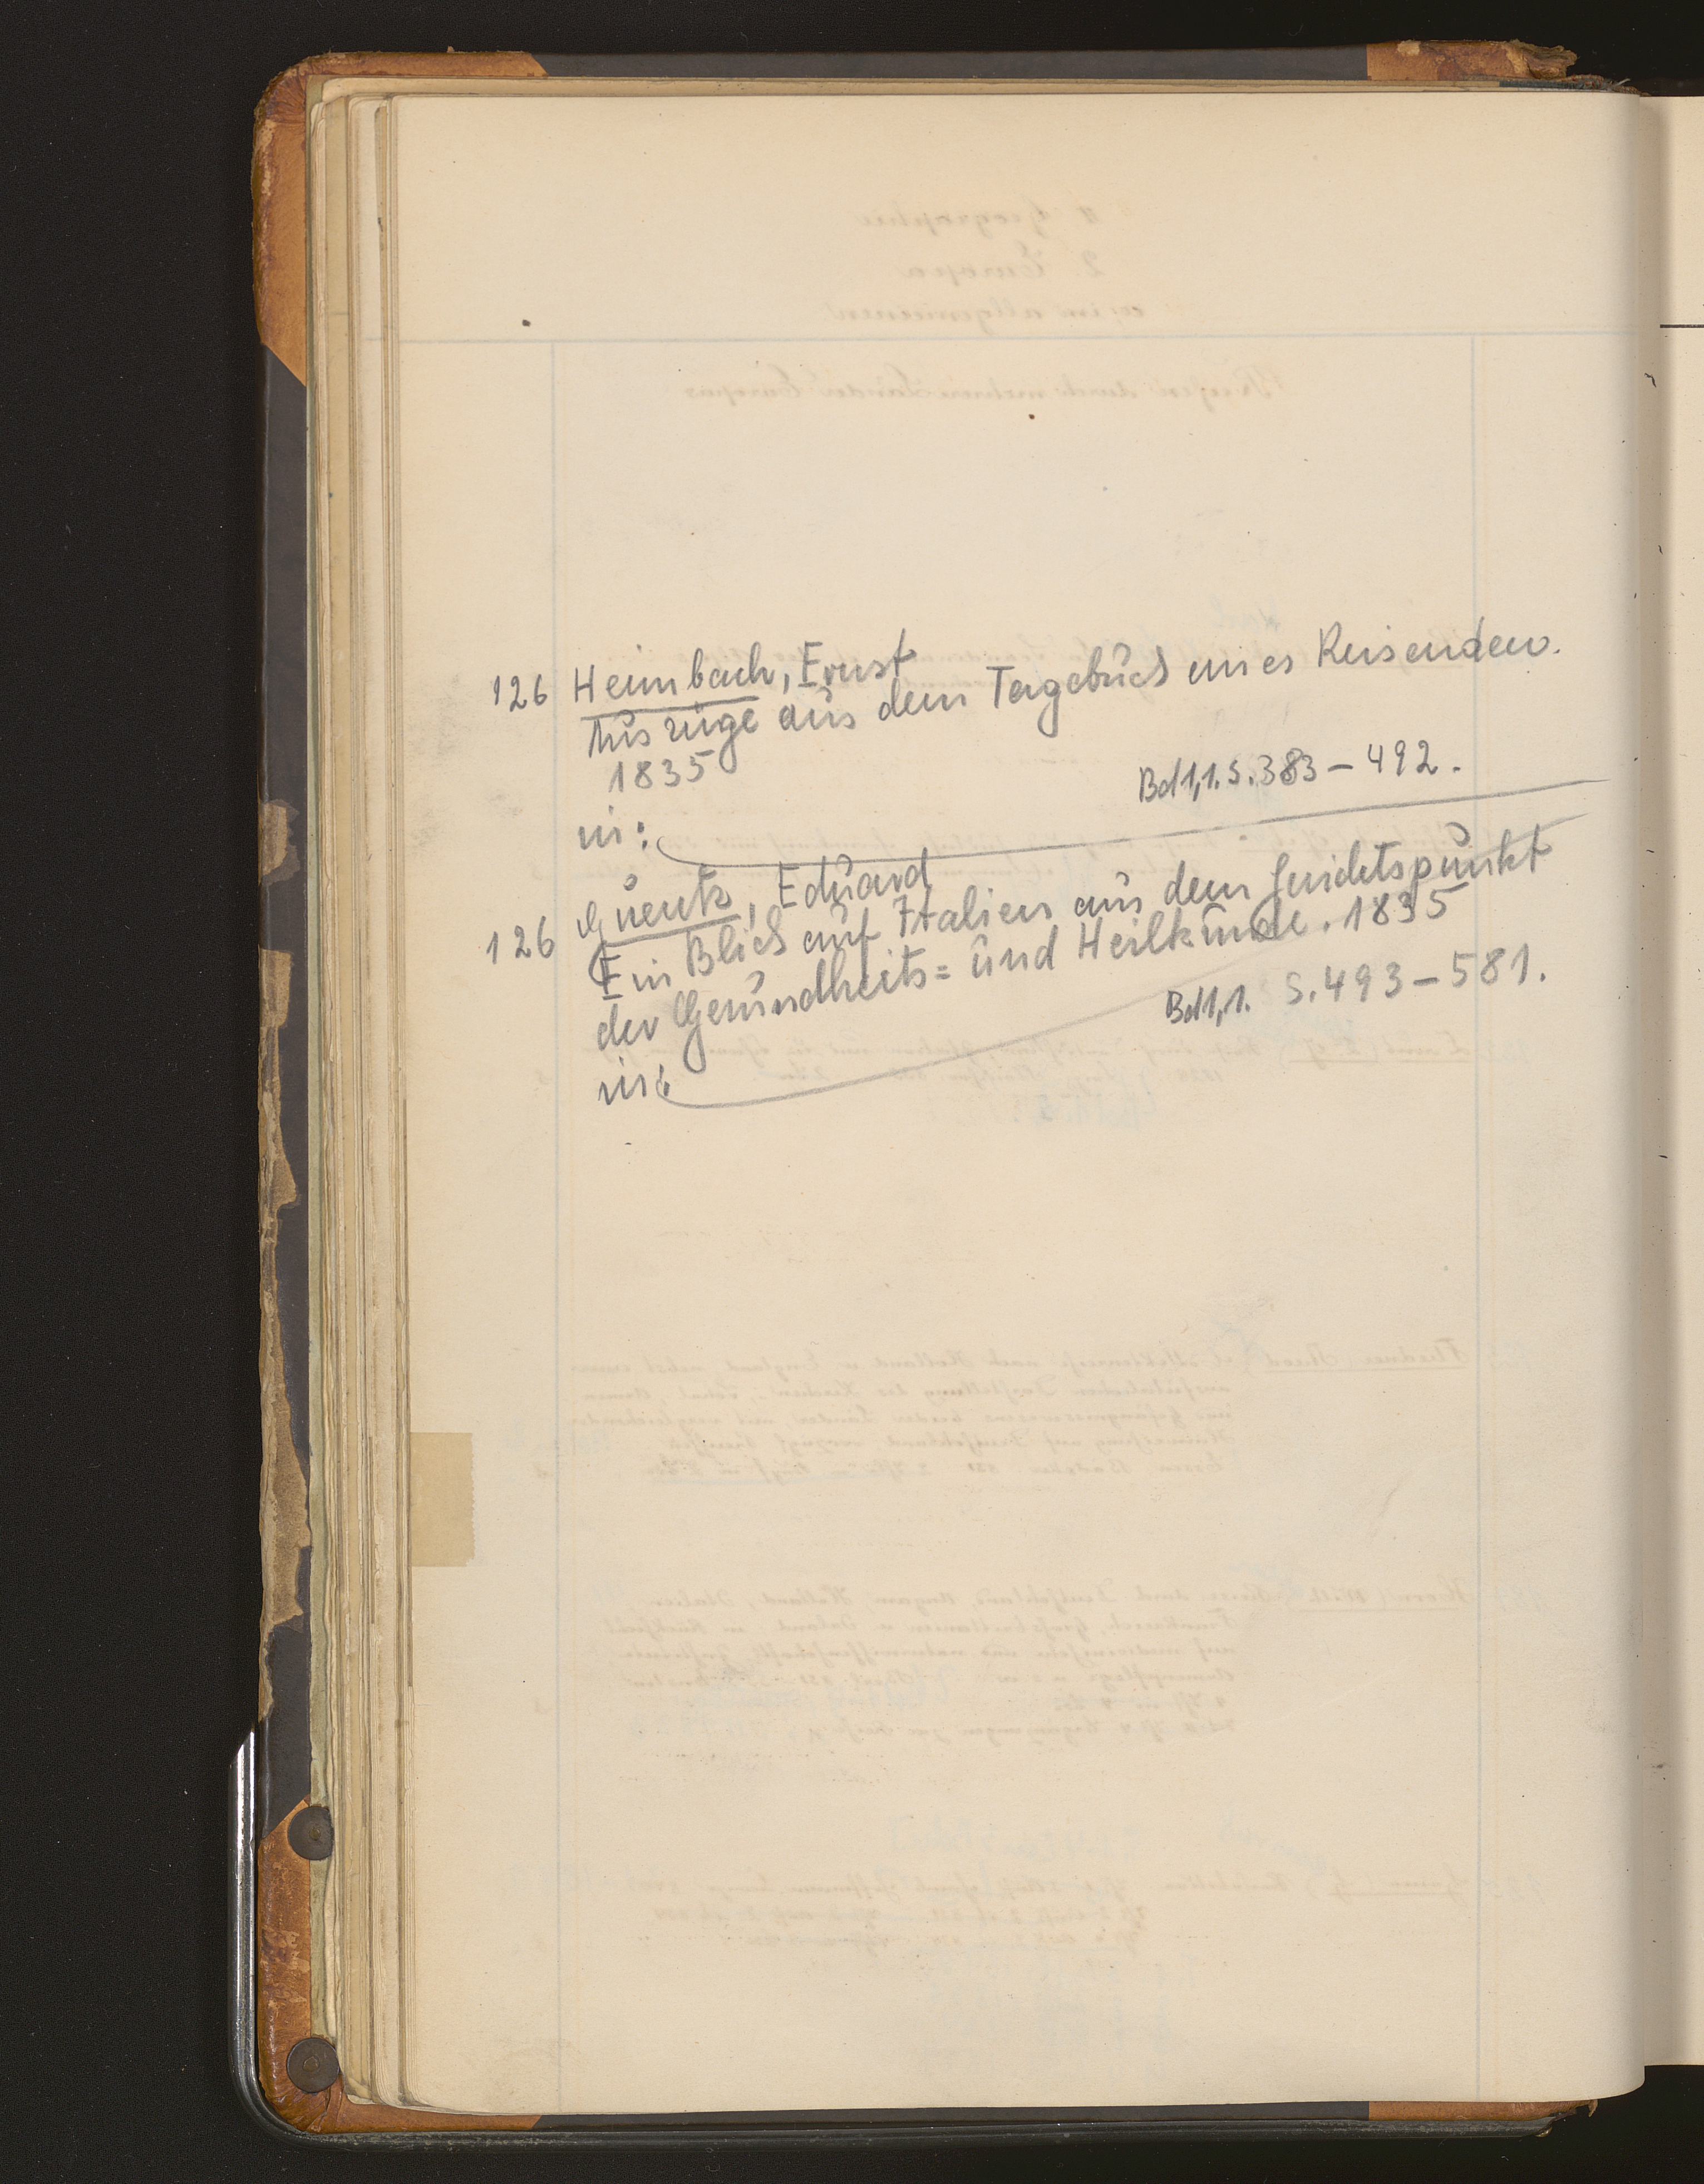 126 Heimbach, Ernst
Auszüge aus dem Tagebuch eines Reisenden.
1835
in: Bd 1,1. S. 383-492.
126 Guentz, Eduard
Ein Blick auf Italien aus dem Gesichtspunkt
der Gesundheits= und Heilkunde. 1835
in: Bd 1,1. S. 493-581.